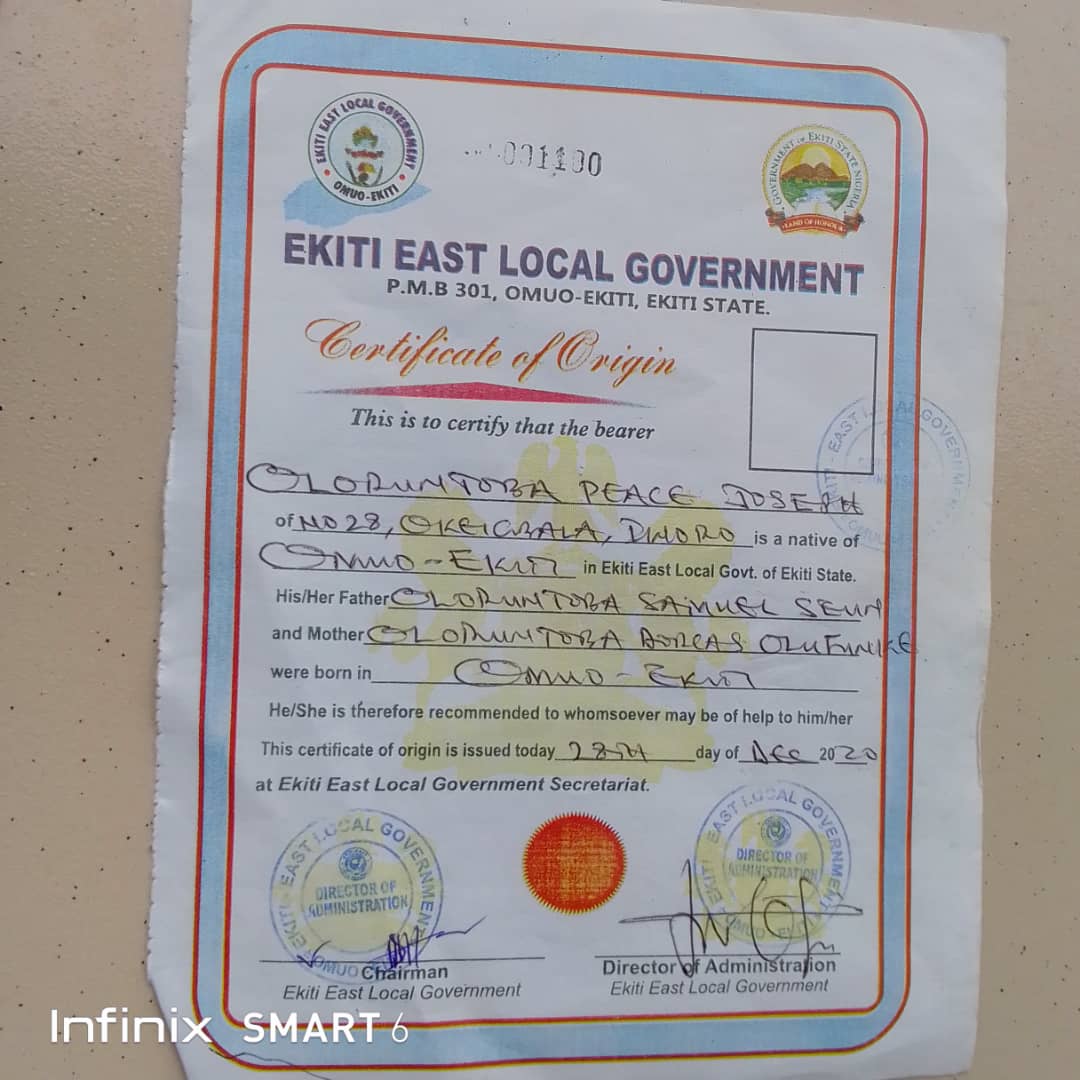 EKITI EAST LOCAL GOVERNMENT
OMUO-EKITI
001100
GOVERNMENT OF EKITI STATE NIGERIA
LAND OF HONOUR
EKITI EAST LOCAL GOVERNMENT
P.M.B 301, OMUO-EKITI, EKITI STATE.
Certificate of Origin
This is to certify that the bearer
OLORUNTOBA PEACE JOSEPH
of NO 28, OKEIGBALA, is a native of
OMUO-EKITI in Ekiti East Local Govt. of Ekiti State.
His/Her Father OLORUNTOBA SAMUEL SEUN
and Mother OLORUNTOBA DORCAS OLUFUNKE
were born in OMUO-EKITI
He/She is therefore recommended to whomsoever may be of help to him/her
This certificate of origin is issued today 28TH day of DEC 2020
at Ekiti East Local Government Secretariat.
EKITI EAST LOCAL GOVERNMENT
DIRECTOR OF
ADMINISTRATION
OMUO
EKITI EAST LOCAL GOVERNMENT
DIRECTOR OF
ADMINISTRATION
OMUO EKITI
Chairman
Ekiti East Local Government
Director of Administration
Ekiti East Local Government
Infinix SMART 6